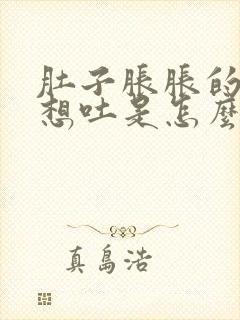 肚子脹脹的
想吐是怎麼
真島浩